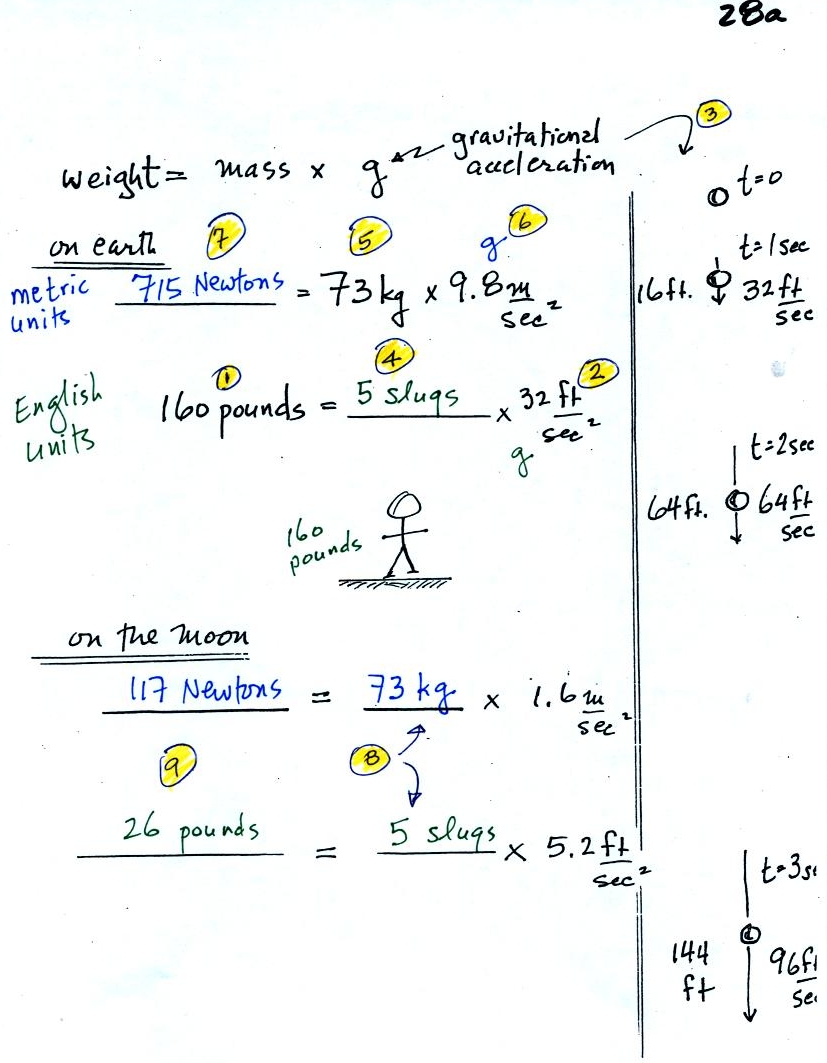 28a
3
gravitational
acceleration
weight = mass x g
on earth
7
5
6
g
metric
units
715 Newtons = 73 kg x 9.8 m
sec²
English
units
1
4
2
160 pounds = 5 slugs x 32 ft
sec²
g
160
pounds
on the moon
117 Newtons = 73 kg x 1.6 m
sec²
9
8
26 pounds = 5 slugs x 5.2 ft
sec²
t=0
t=1sec
16ft. 32 ft
sec
t=2sec
64ft. 64 ft
sec
t=3s
144
ft
96f
se